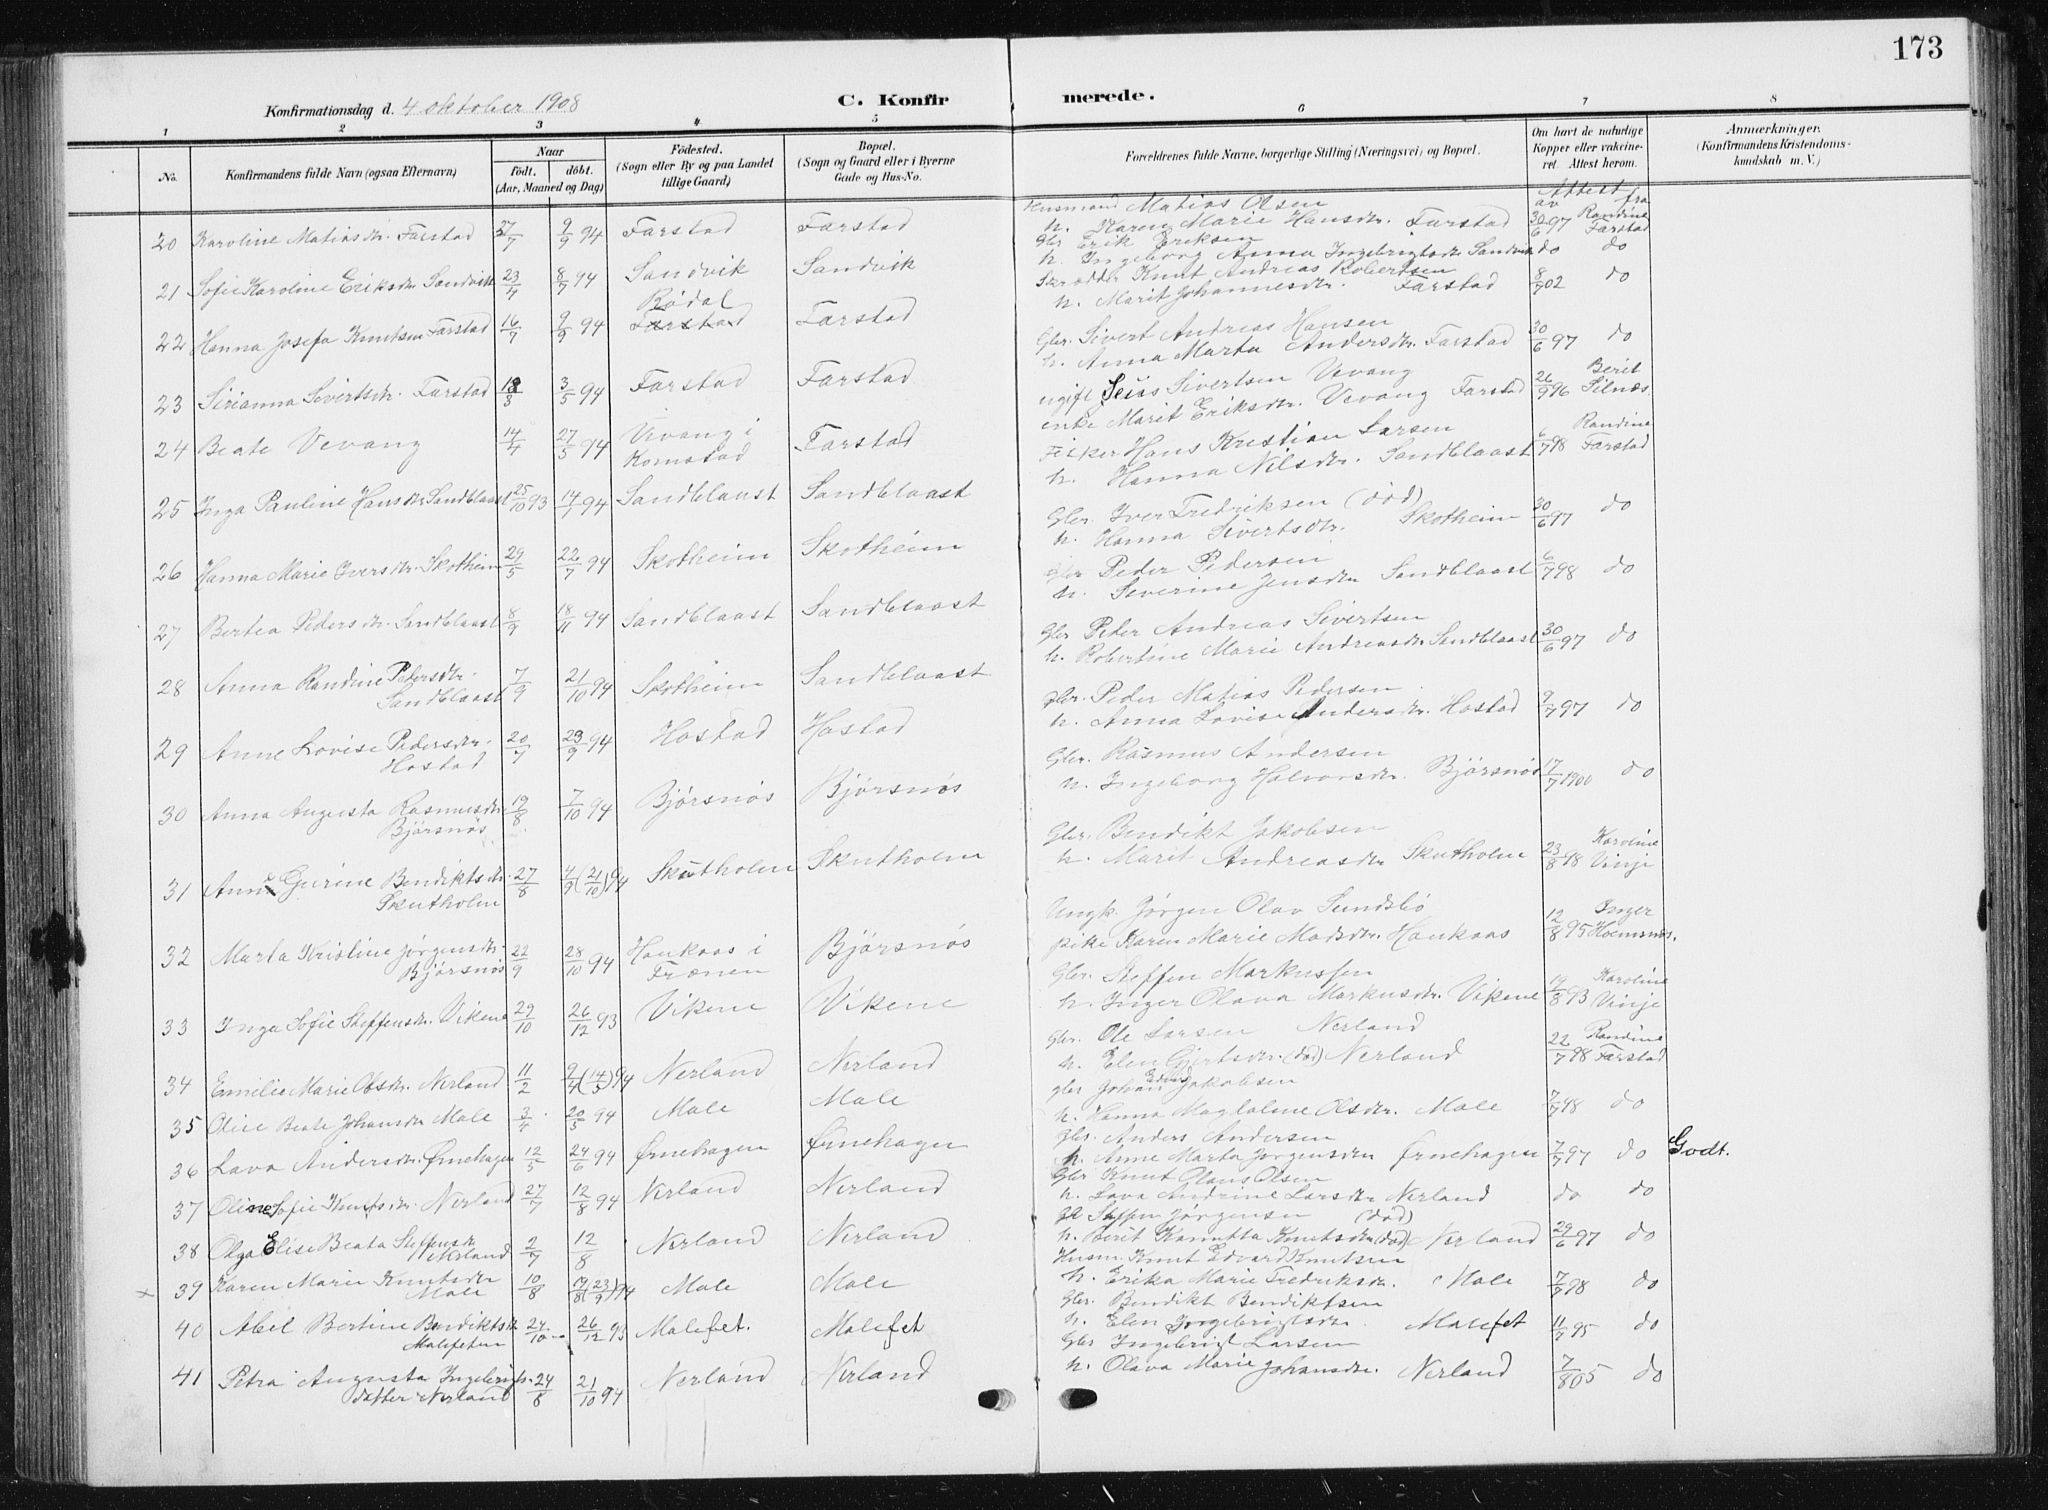 173
Konfirmationsdag d. 4 oktober 1908
C. Konfirmerede.
1 2 3 4 5 6 7 8
No. Konfirmandens fulde Navn (ogsaa Efternavn) Naar født. døbt. (Aar, Maaned og Dag) Fødested. (Sogn eller By og paa Landet tillige Gaard) Bopæl. (Sogn og Gaard eller i Byerne Gade og Hus-No. Forældrenes fulde Navne, borgerlige Stilling (Næringsvei) og Bopæl. Om havt de naturlige Kopper eller vakcineret. Attest herom. Anmærkninger. (Konfirmandens Kristendomskundskab m. V.)
Attest av fra
Husmand Matias Olsen
20 Karoline Matiasdtr. Farstad 27/7 9/9 94 Farstad Farstad h. Karen Marie Hansdtr. Farstad 30/6 97 Randine Farstad
Gbr. Erik Eriksen
21 Sofie Karoline Eriksdtr. Sandvik 23/4 8/7 94 Sandvik Sandvik h. Ingeborg Anna Ingebrigtsdtr. Sandvik do do
Skrædder Knut Andreas Robertsen
22 Hanna Josefa Knutsdtr. Farstad 16/7 9/9 94 Bødal Farstad Farstad h. Marit Johannesdtr. Farstad 8/7 02 do
Gbr. Sivert Andreas Hansen
23 Sirianna Sivertsdtr. Farstad 18/3 3/5 94 Farstad Farstad h. Anna Marta Andersdtr. Farstad 30/6 97 do
ugift Sivertsen Vevang
24 Beate Vevang 14/4 27/5 94 Vevang i Kornstad Farstad enke Marit Eriksdtr. Vevang Farstad 26/9 96 Berit Silnæs
Fisker Hans Kristian Larsen
25 Inga Pauline Hansdtr. Sandblaast 25/10 93 14/1 94 Sandblaast Sandblaast h. Hanna Nilsdtr. Sandblaast 6/7 98 Randine Farstad
Gbr. Iver Fredriksen (død)
26 Hanna Marie Iversdtr. Skotheim 29/5 22/7 94 Skotheim Skotheim h. Hanna Sivertsdtr. Skotheim 30/6 97 do
Gbr. Peder Pedersen
27 Bertea Pedersdtr. Sandblaast 8/9 18/11 94 Sandblaast Sandblaast h. Severine Jensdtr. Sandblaast 6/7 98 do
Gbr. Peder Andreas Sivertsen
28 Anna Randine Pedersdtr. Sandblaast 7/9 21/10 94 Skotheim Sandblaast h. Robertine Marie Andreasdtr. Sandblaast 30/6 97 do
Gbr. Peder Matias Pedersen
29 Anne Lovise Pedersdtr. Hostad 20/7 23/9 94 Hostad Hostad h. Anna Lovise Andersdtr. Hostad 9/7 97 do
Gbr. Rasmus Andersen
30 Anna Augusta Rasmusdtr. Bjørsnøs 19/8 7/10 94 Bjørsnøs Bjørsnøs h. Ingeborg Halvorsdtr. Bjørsnøs 17/7 1900 do
Gbr. Bendikt Jakobsen
31 Anne Gurine Bendiktsdtr. Skutholm 27/8 4/9 (21/10) 94 Skutholm Skutholm h. Marit Andreasdtr. Skutholm 23/8 98 Karoline Vinje
Ungk. Jørgen Olav Sundsbø
32 Marta Kristine Jørgensdtr. Bjørsnøs 22/9 28/10 94 Haukaas i Frænen Bjørsnøs pike Karen Marie Madsdtr. Haukaas 12/8 95 Inger Holmsnøs.
Gbr. Steffen Markussen
33 Inga Sofie Steffensdtr. Vikene 29/10 26/12 93 Vikene Vikene h. Inger Olava Markusdtr. Vikene 19/8 93 Karoline Vinje
Gbr. Ole Larsen Nerland
34 Emilie Marie Olsdtr. Nerland 11/2 9/4 (14/5) 94 Nerland Nerland h. Elen Gjertsdtr. (død) Nerland 22/7 98 Randine Farstad
gbr Johan Edvin Jakobsen
35 Olise Beate Johansdtr Male 3/4 20/5 94 Male Male h. Hanna Magdalene Olsdtr. Male 7/7 98 do
Gbr. Anders Andersen
36 Lava Andersdtr. Ørnehagen 12/5 24/6 94 Ørnehagen Ørnehagen h. Anne Marta Jørgensdtr Ørnehagen 7/7 97 do Godt.
Gbr Knut Olaus Olsen
37 Oline Sofie Knutsdtr. Nerland 27/7 12/8 94 Nerland Nerland h. Lava Andrine Larsdtr Nerland do do
Gb Steffen Jørgensen (død)
38 Olga Elise Beata Steffensdtr Nerland 2/7 12/8 Nerland Nerland h. Berit Knutsdtr (død) Nerland 29/6 97 do
Husm. Knut Edvard Knutsen
39 Karen Marie Knutsdtr Male 10/8 19/8 (23/9) 94 Male Male h. Erika Marie Fredriksdtr. Male 7/7 98 do
Gbr. Bendikt Bendiktsen
40 Abel Bertine Bendiktsdtr Malefeten 24/10 26/12 93 Malefet. Malefet h. Elen Ingebrigtsdtr. Malefet 11/7 95 do
Gbr Ingebrigt Larsen
41 Petra Augusta Ingebrigtsdatter Nerland 24/8 21/10 94 Nerland Nerland h. Olava Marie Johansdtr. Nerland 7/8 05 do